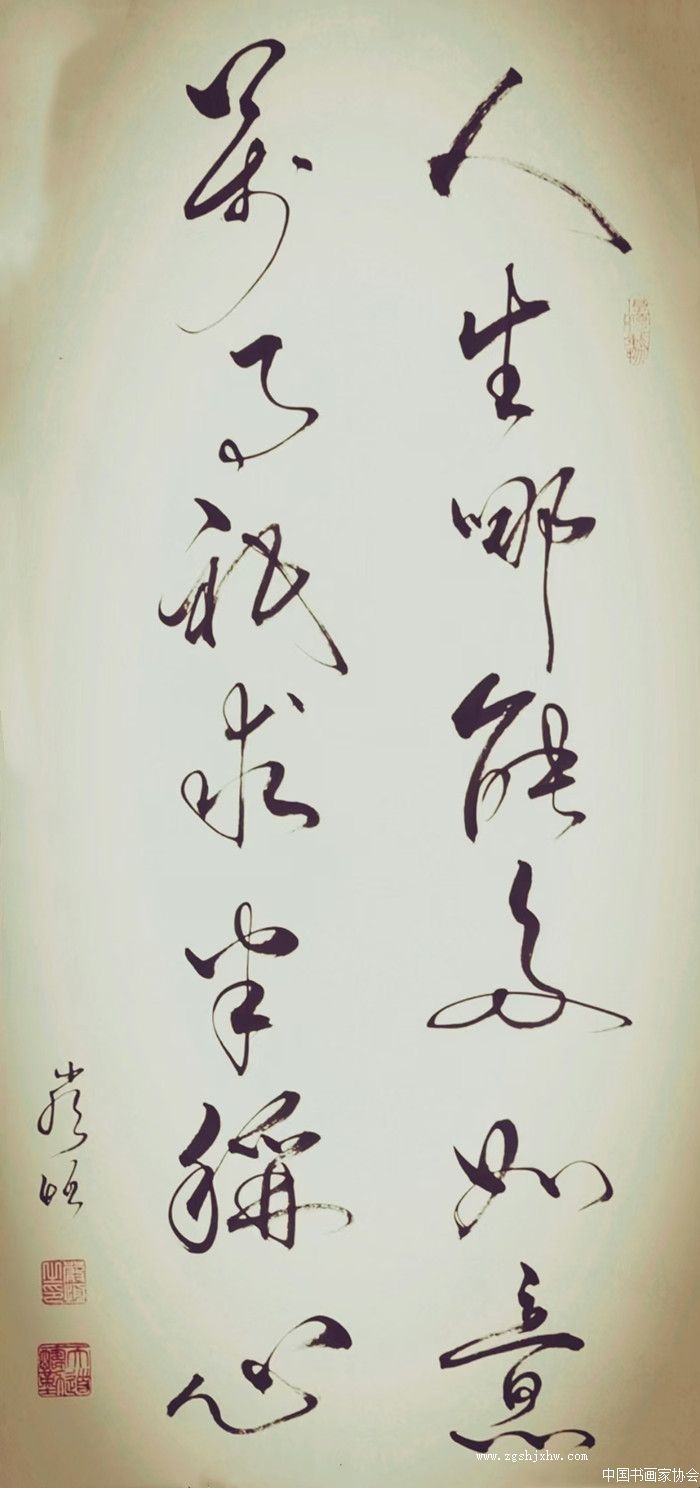 人生哪能多如意
萬事祇求半稱心
www.zgshjxhw.com
中国书画家协会